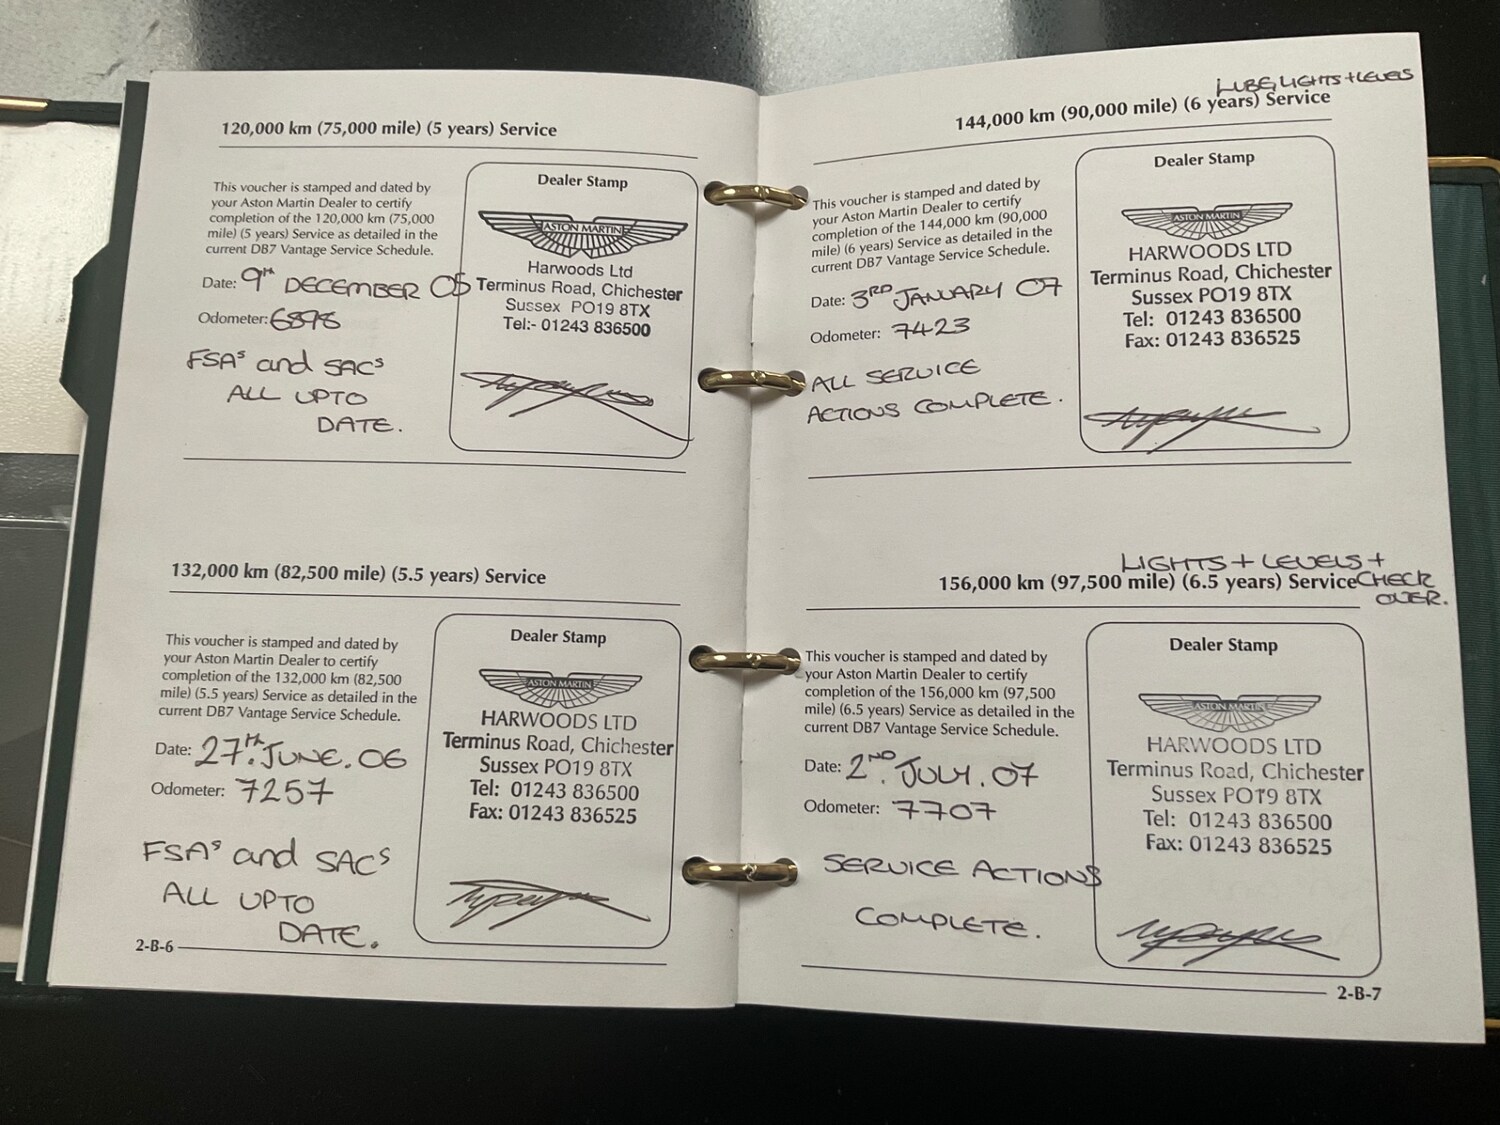 120,000 km (75,000 mile) (5 years) Service
This voucher is stamped and dated by
your Aston Martin Dealer to certify
completion of the 120,000 km (75,000
mile) (5 years) Service as detailed in the
current DB7 Vantage Service Schedule.
Date: 9TH DECEMBER 05
Odometer: 6898
FSAs and SACs
ALL UPTO
DATE.
Dealer Stamp
ASTON MARTIN
Harwoods Ltd
Terminus Road, Chichester
Sussex PO19 8TX
Tel:- 01243 836500
132,000 km (82,500 mile) (5.5 years) Service
This voucher is stamped and dated by
your Aston Martin Dealer to certify
completion of the 132,000 km (82,500
mile) (5.5 years) Service as detailed in the
current DB7 Vantage Service Schedule.
Date: 27th. JUNE. 06
Odometer: 7257
FSAs and SACs
ALL UPTO
DATE.
Dealer Stamp
ASTON MARTIN
HARWOODS LTD
Terminus Road, Chichester
Sussex PO19 8TX
Tel: 01243 836500
Fax: 01243 836525
2-B-6
LUBE, LIGHTS + LEVELS
144,000 km (90,000 mile) (6 years) Service
This voucher is stamped and dated by
your Aston Martin Dealer to certify
completion of the 144,000 km (90,000
mile) (6 years) Service as detailed in the
current DB7 Vantage Service Schedule.
Date: 3RD JANUARY 07
Odometer: 7423
ALL SERVICE
ACTIONS COMPLETE.
Dealer Stamp
ASTON MARTIN
HARWOODS LTD
Terminus Road, Chichester
Sussex PO19 8TX
Tel: 01243 836500
Fax: 01243 836525
LIGHTS + LEVELS +
156,000 km (97,500 mile) (6.5 years) Service CHECK
OVER.
This voucher is stamped and dated by
your Aston Martin Dealer to certify
completion of the 156,000 km (97,500
mile) (6.5 years) Service as detailed in the
current DB7 Vantage Service Schedule.
Date: 2ND. JULY. 07
Odometer: 7707
SERVICE ACTIONS
COMPLETE.
Dealer Stamp
ASTON MARTIN
HARWOODS LTD
Terminus Road, Chichester
Sussex PO19 8TX
Tel: 01243 836500
Fax: 01243 836525
2-B-7